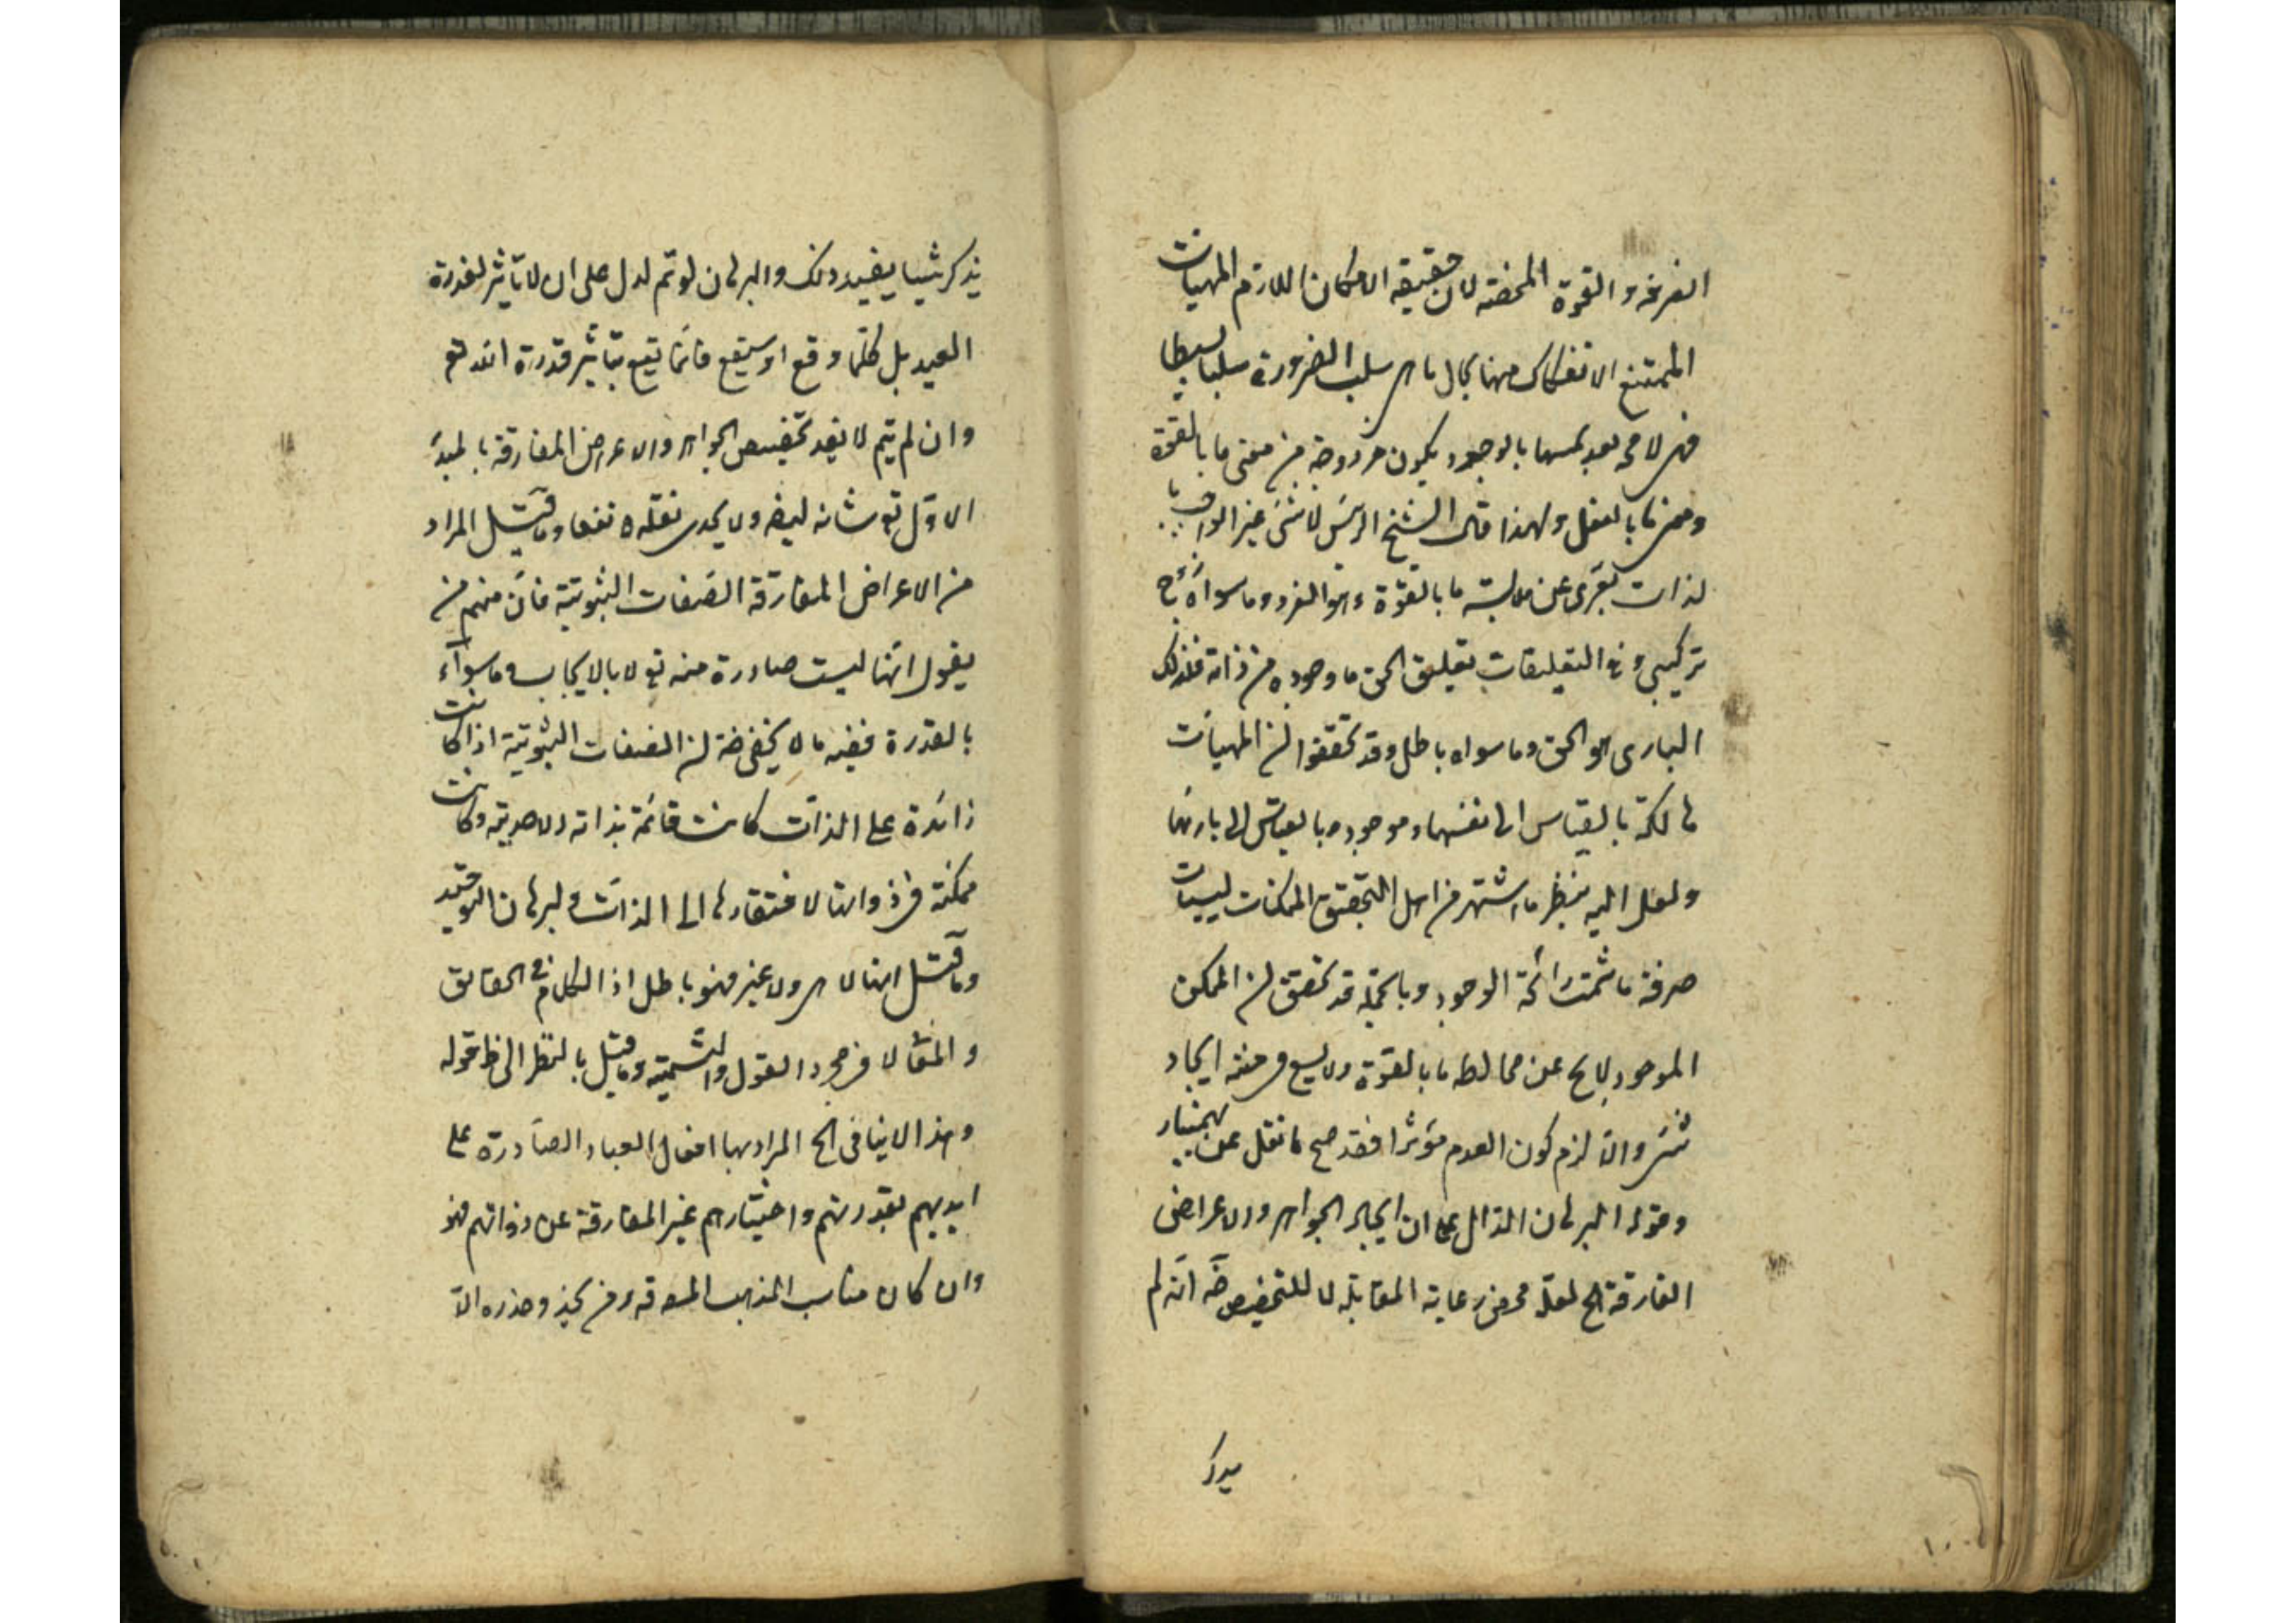 الصرفة و القوة المحضة لان حقيقة الامكان اللازم للمهيات
الممتنع الانفكاك منها بحال ما هى سلب الضرورة سلبا بسيطا
فهى لا مح بعد بالوجود يكون مزدوجة من معنى ما بالقوة
ومعنى ما بالفعل ولهذا قال الشيخ الرئيس لا شئ غير الواجب
لذات تعرى عن ملابسة ما بالقوة وهو الفرد وما سواه زوج
تركيبى وفى التعليقات الحق ما وجوده من ذاته فلذلك
البارى هو الحق وما سواه باطل وقد تحققوا ان المهيات
هالكة بالقياس الى نفسها وموجوده بالقياس الى بارئها
ولعل اليه ينظر ما اشتهر من اهل التحقيق الممكنات ليسيات
صرفة ما شمت رائحة الوجود وبالجملة قد تحقق ان الممكن
الموجود لا يخ عن مخالطه ما بالقوة ولا يسع فى ايجاد
شئ والا لزم كون العدم مؤثرا فقد صح ما نقل عن بهمنيار
وقوله البرهان الدال على ان ايجاد الجواهر والاعراض
الفارقة الخ لعله محض رعاية المقابلة لا للتخصيص انه لم
يذكر
يذكر شيئا يفيد ذلك والبرهان لو تم لدل على ان لا تأثير لقدرة
العبد بل كلما وقع او سيقع فانما يقع بتأثير قدرة الله تع
وان لم يتم لا يفيد تخصيص الجواهر والاعراض المفارقة بالمبدأ
الاول تع شانه ايضا ولا يجدى نقله نفعا وما قيل المراد
من الاعراض المفارقة الصفات الثبوتية فان منهم من
يقول انها ليست صادرة منه تع لا بالايجاب وما سواه
بالقدرة ففيه ما لا يخفى ان الصفات الثبوتية اذا كانت
زائدة على الذات كانت قائمة بذاته الاحدية وكانت
ممكنة فى ذواتها لافتقارها الى الذات ولبرهان التوحيد
وما قيل انها لا هى ولا غير فهو باطل اذ الكلام فى الحقائق
و المقال لا فى مجرد القول والتسمية وما قيل بالنظر الى قوله
وهذا لا ينافى الخ المراد بها افعال العباد الصادرة على
ايديهم بقدرتهم واختيارهم غير المفارقة عن ذواتهم فهو
وان كان مناسب المذهب وحذره الا